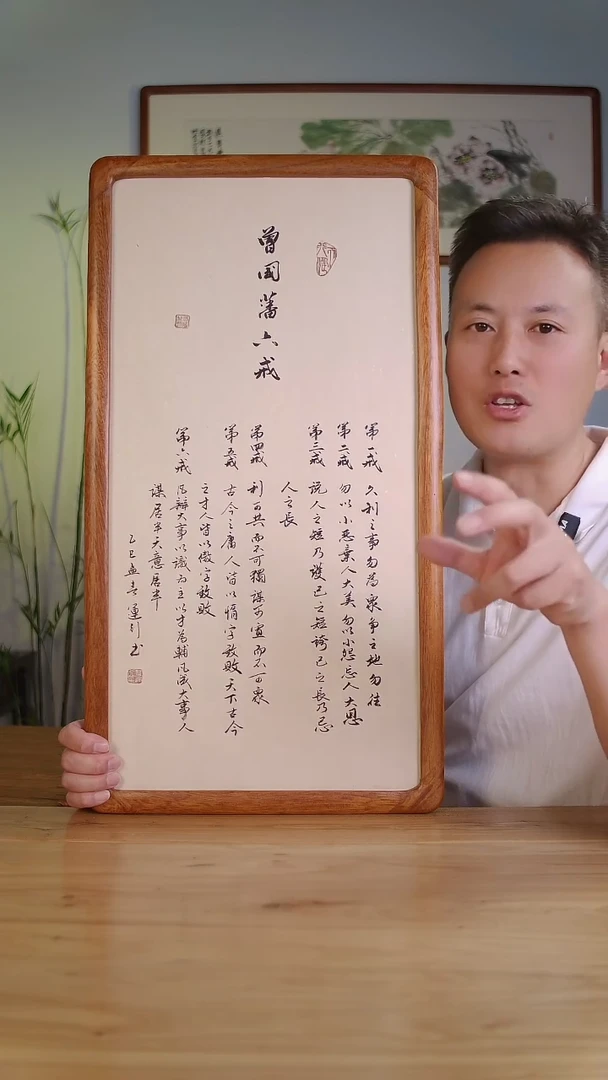 曾国藩六戒
第一戒 久利之事勿为众争之地勿往
第二戒 勿以小恶弃人大美勿以小怨忘人大恩
第三戒 说人之短乃护己之短誇己之长乃忌
人之长
第四戒 利可共而不可独谋可寡而不可众
第五戒 古今之庸人皆以惰字致败天下古今
之才人皆以傲字致败
第六戒 凡办大事以识为主以才为辅凡成大事人
谋居半天意居半
乙巳孟春运行书